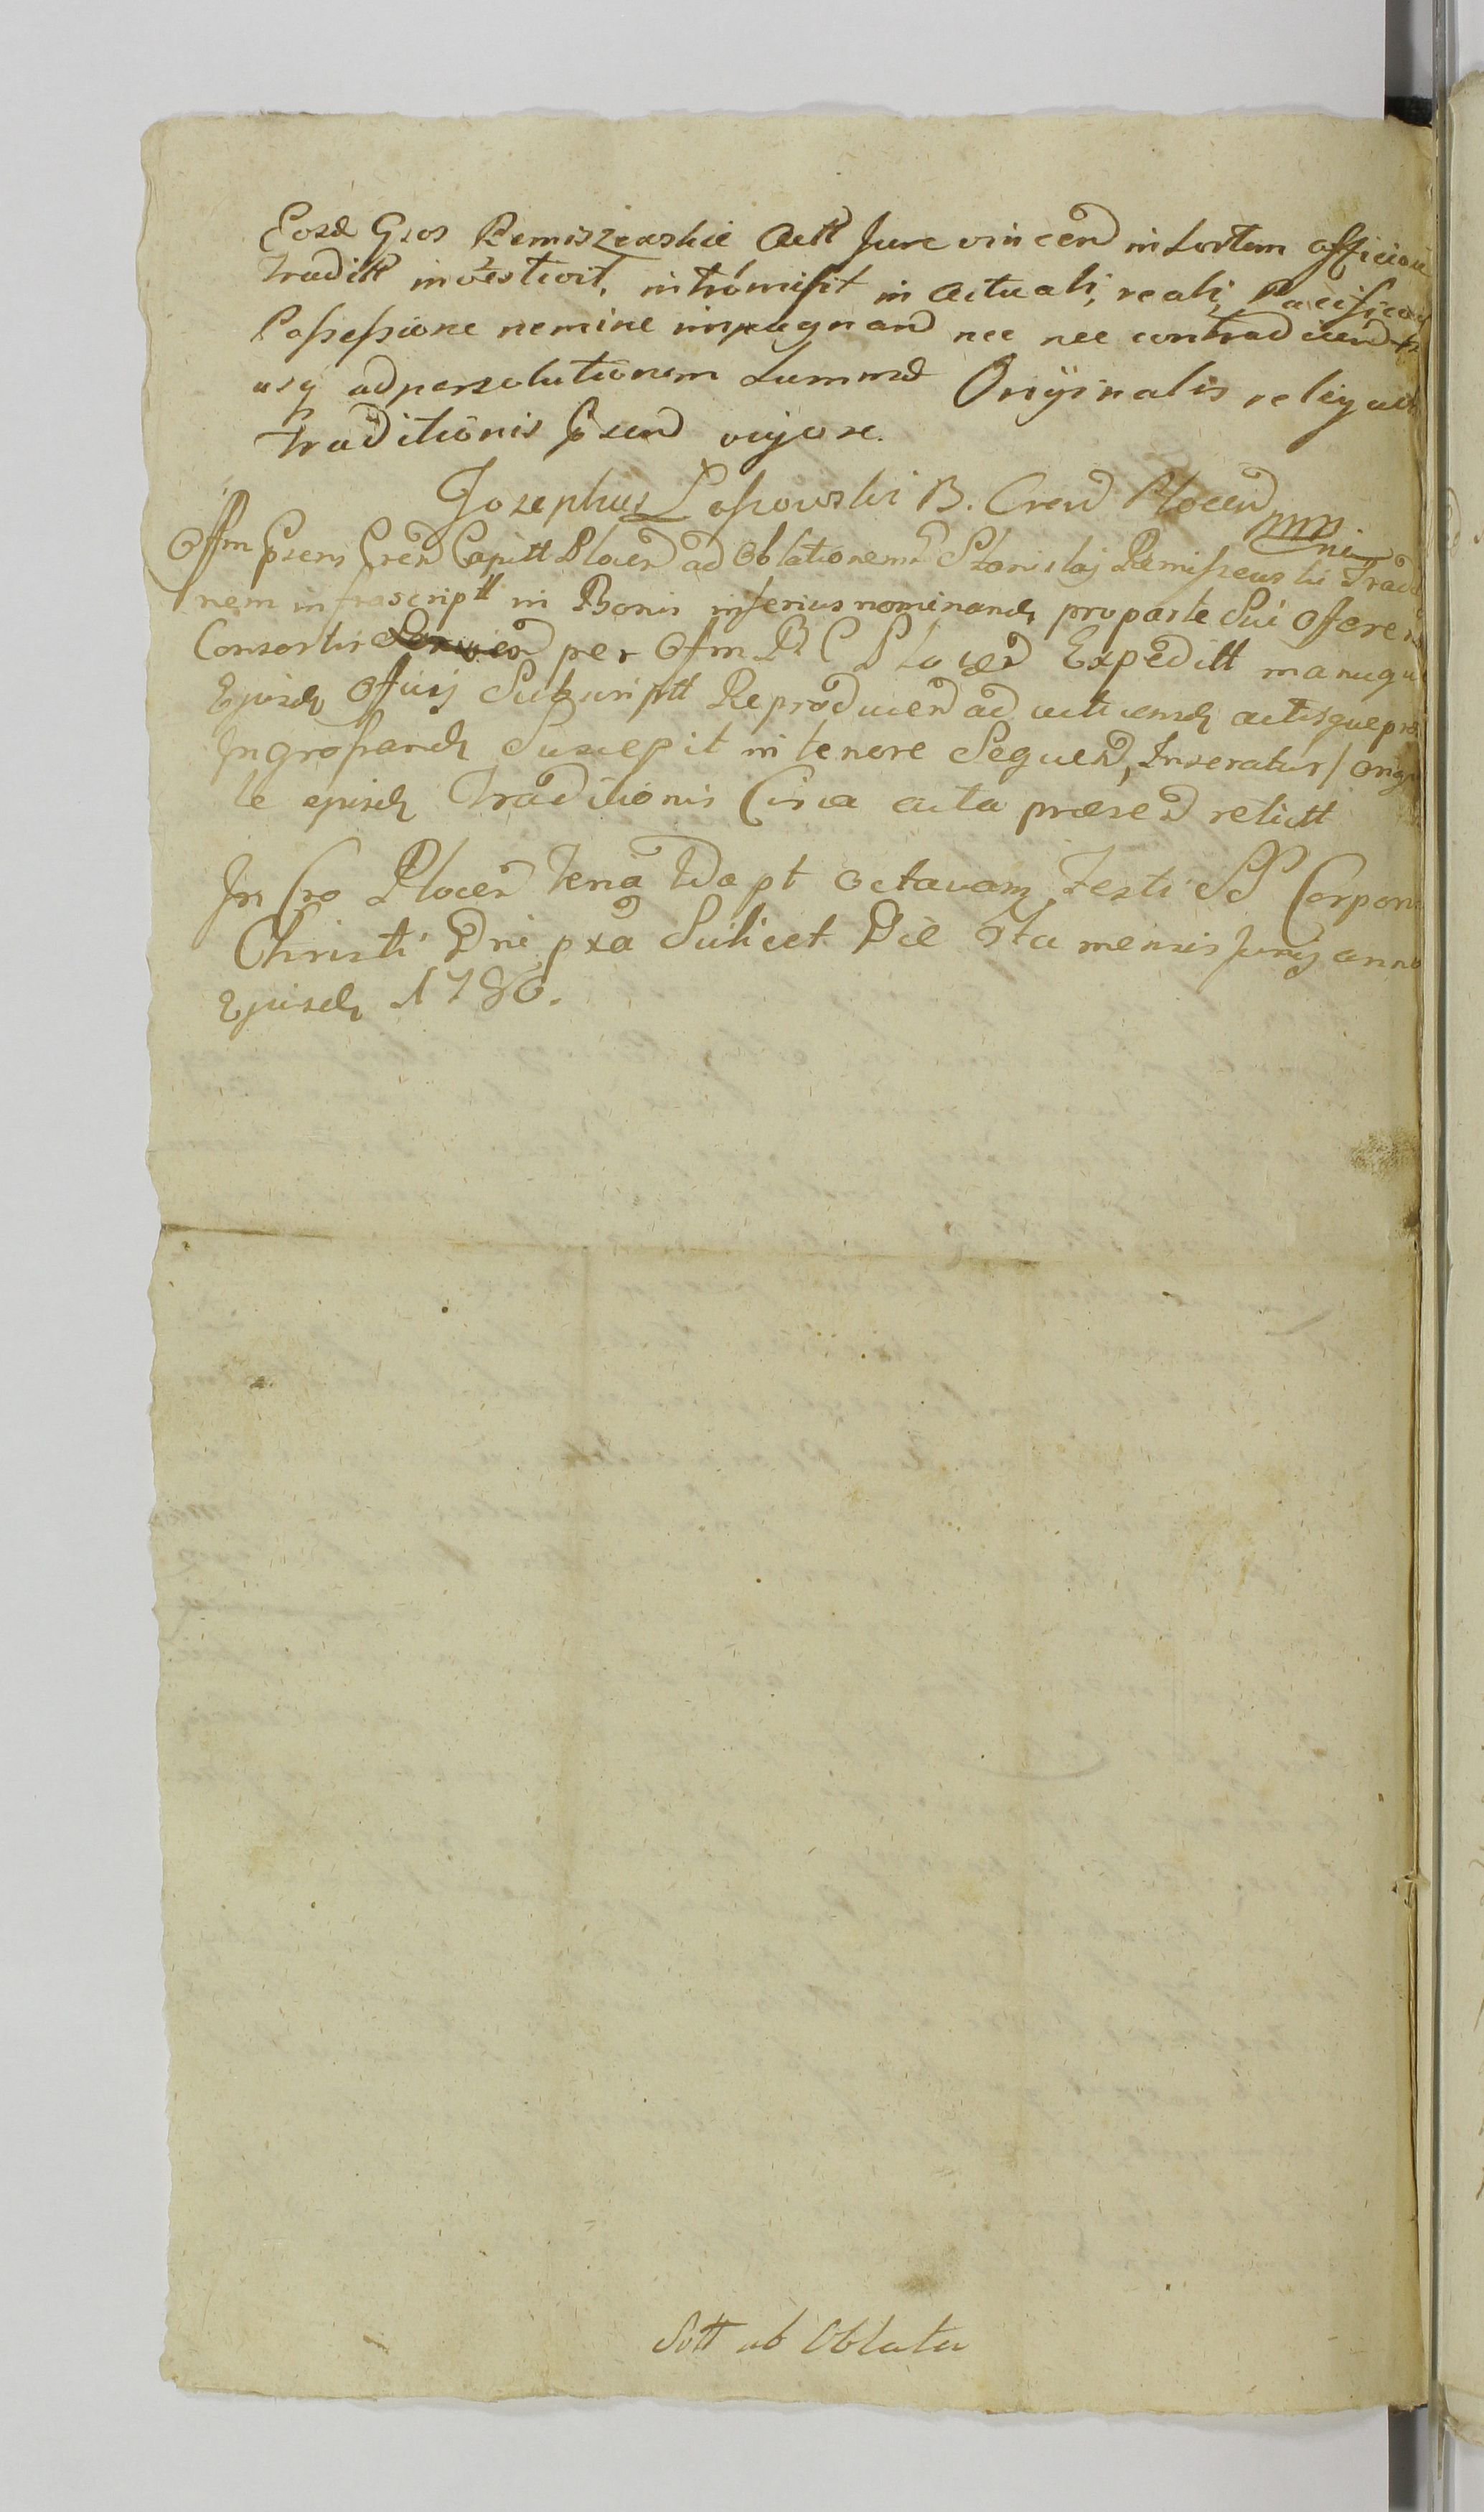 Eosd Gsos Remiszewskie Actt Jure vincend in Sortem officiose
Traditt investivit, intromisit in Actuali, reali, Pacifica
Possessione nemine impugnand nec nec contradicend
usq ad persolutionem Summæ Originalis reliquit
Traditionis Psend vigore.
Josephus Lossowski B. Crend Plocend mp.
Offm Psens Cren Capitt Plocen ad Oblationem G Stanislaj Remissewski Tradi
nem infrascriptt in Bonis inferius nominand, pro parte Sui Offeren
Consortis per Offm B C Plocen Expeditt manuqu
Ejusd, Offij Subscriptt Reproducend ad acticand, actisque pr
Ingrossand, Suscepit in tenore Sequen, Inseratur / Orig
le ejusd, Traditionis Circa acta præsen relictt
In Cro Plocen Feria IIda pt Octavam Festi SS Corporis
Christi Dni pxa Scilicet Die 5ta mensis Junij anno
Ejusd, 1780.
Sott ab Oblata